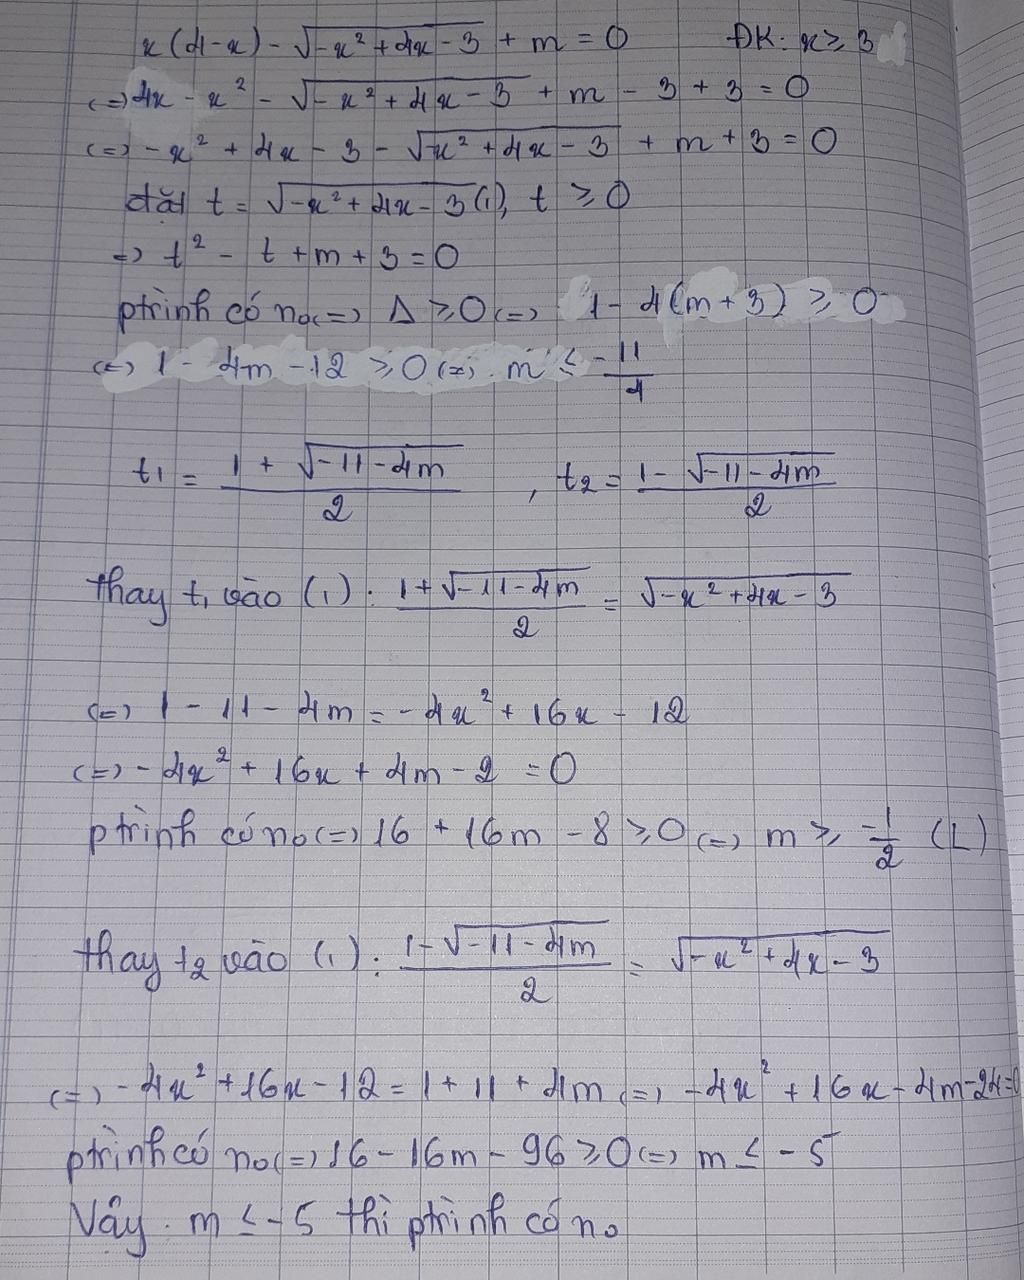 x(4-x) - √(-x² + 4x - 3) + m = 0 ĐK: x ≥ 3
(=) 4x - x² - √(-x² + 4x - 3) + m - 3 + 3 = 0
(=) -x² + 4x - 3 - √(-x² + 4x - 3) + m + 3 = 0
đặt t = √(-x² + 4x - 3) (1), t ≥ 0
=) t² - t + m + 3 = 0
ptrình có no (=) Δ ≥ 0 (=) 1 - 4(m + 3) ≥ 0
(=) 1 - 4m - 12 ≥ 0 (=) m ≤ -11/4
t1 = (1 + √(-11 - 4m))/2 , t2 = (1 - √(-11 - 4m))/2
thay t1 vào (1): (1 + √(-11 - 4m))/2 = √(-x² + 4x - 3)
(=) 1 - 11 - 4m = -4x² + 16x - 12
(=) -4x² + 16x + 4m - 2 = 0
ptrình có no (=) 16 + 16m - 8 ≥ 0 (=) m ≥ -1/2 (L)
thay t2 vào (1): (1 - √(-11 - 4m))/2 = √(-x² + 4x - 3)
(=) -4x² + 16x - 12 = 1 + 11 + 4m (=) -4x² + 16x - 4m - 24 = 0
ptrình có no (=) 16 - 16m - 96 ≥ 0 (=) m ≤ -5
Vậy m ≤ -5 thì ptrình có no